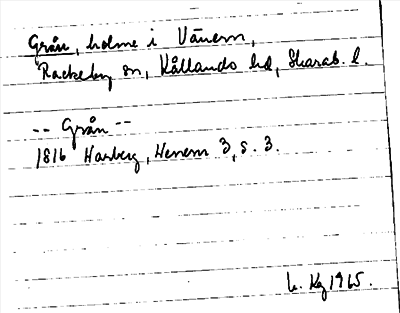 Grån, holme i Vänern,
Rackeby sn, Kållands hd, Skarab. l.
-- Grån --
1816 Warberg, Wenern 3, s. 3.
Kg 1965.